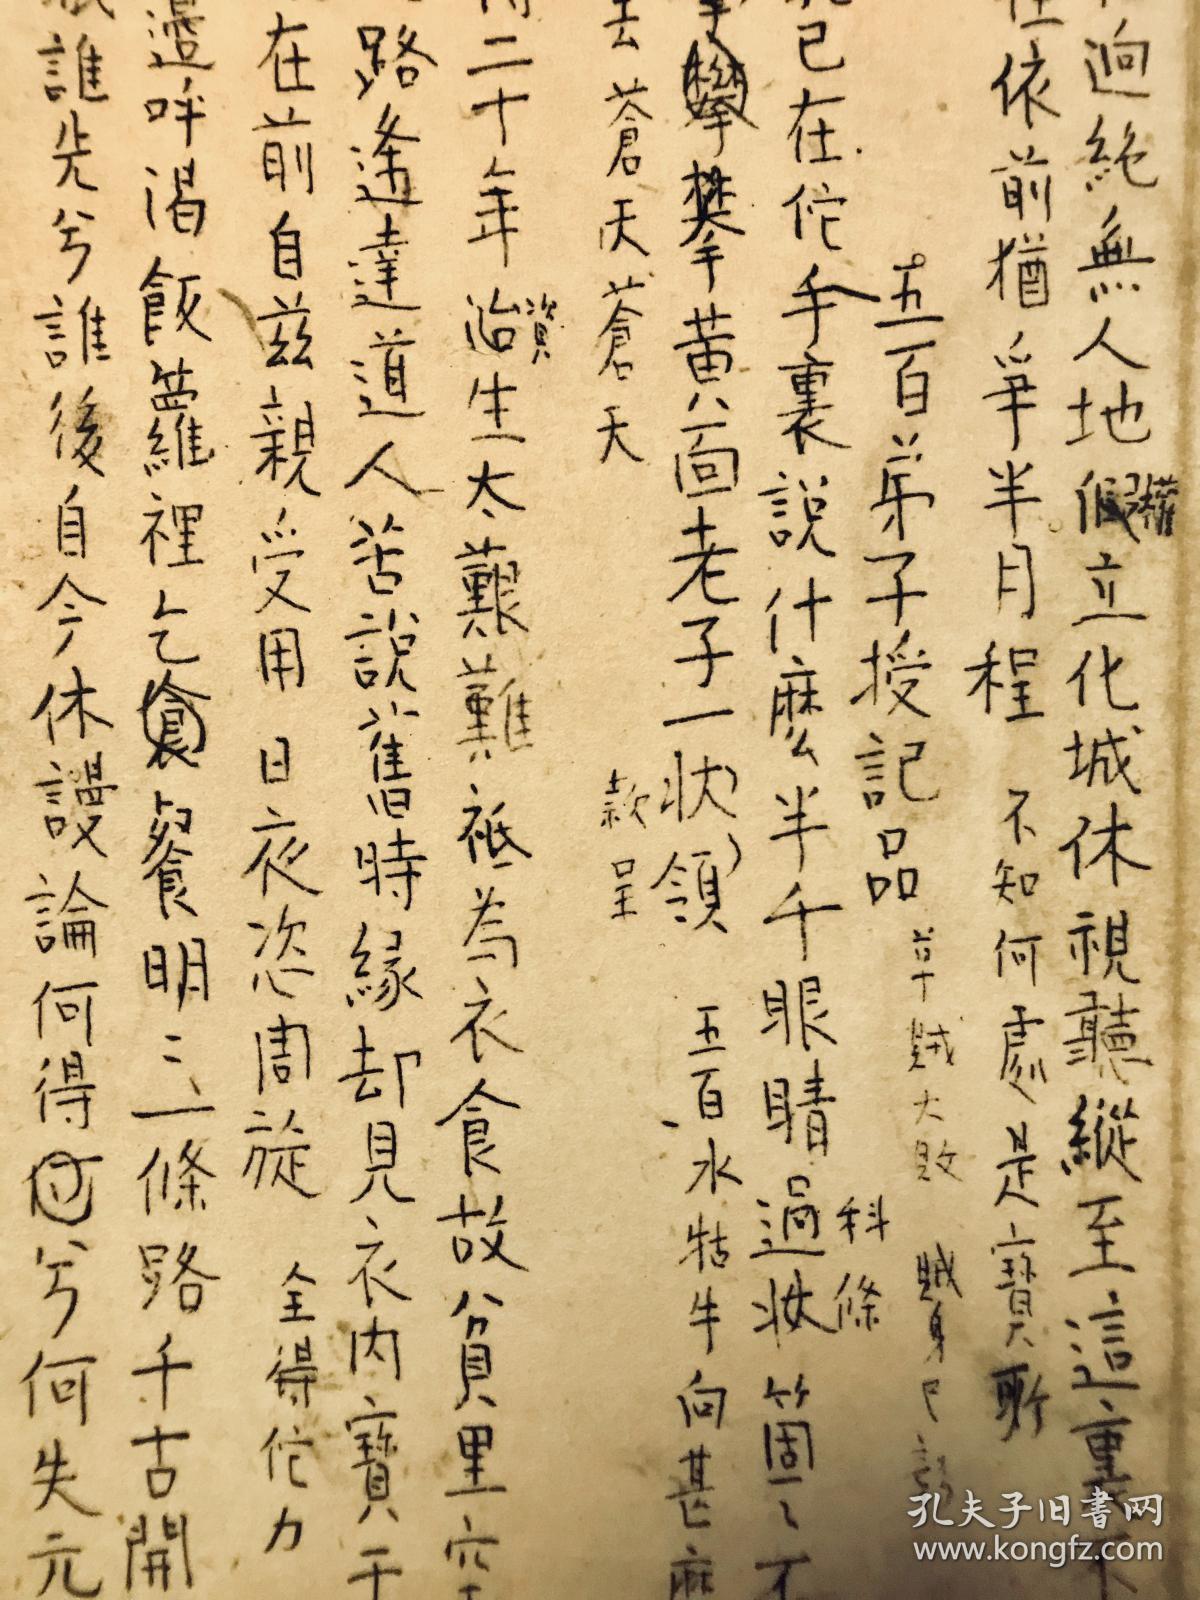 迥絕無人地假立化城休視聽縱至這重
權
依前猶爭半月程 不知何處是寶所
五百弟子授記品 草賊大敗 賊身已
已在佗手裏說什麼半千眼睛過狀箇〻不
科條
攀攀黃面老子一狀領 五百水牯牛向甚麻
款呈
去蒼天蒼天
二十年治生太艱難祗為衣食故貧里空
資
路逢達道人苦說舊時緣却見衣內寶于
在前自茲親受用日夜恣周旋 全得佗力
邉呼渴飯籮裡乞食餐明〻三條路千古開
誰先兮誰後自今休謾論何得兮何失元
孔夫子旧书网
www.kongfz.com